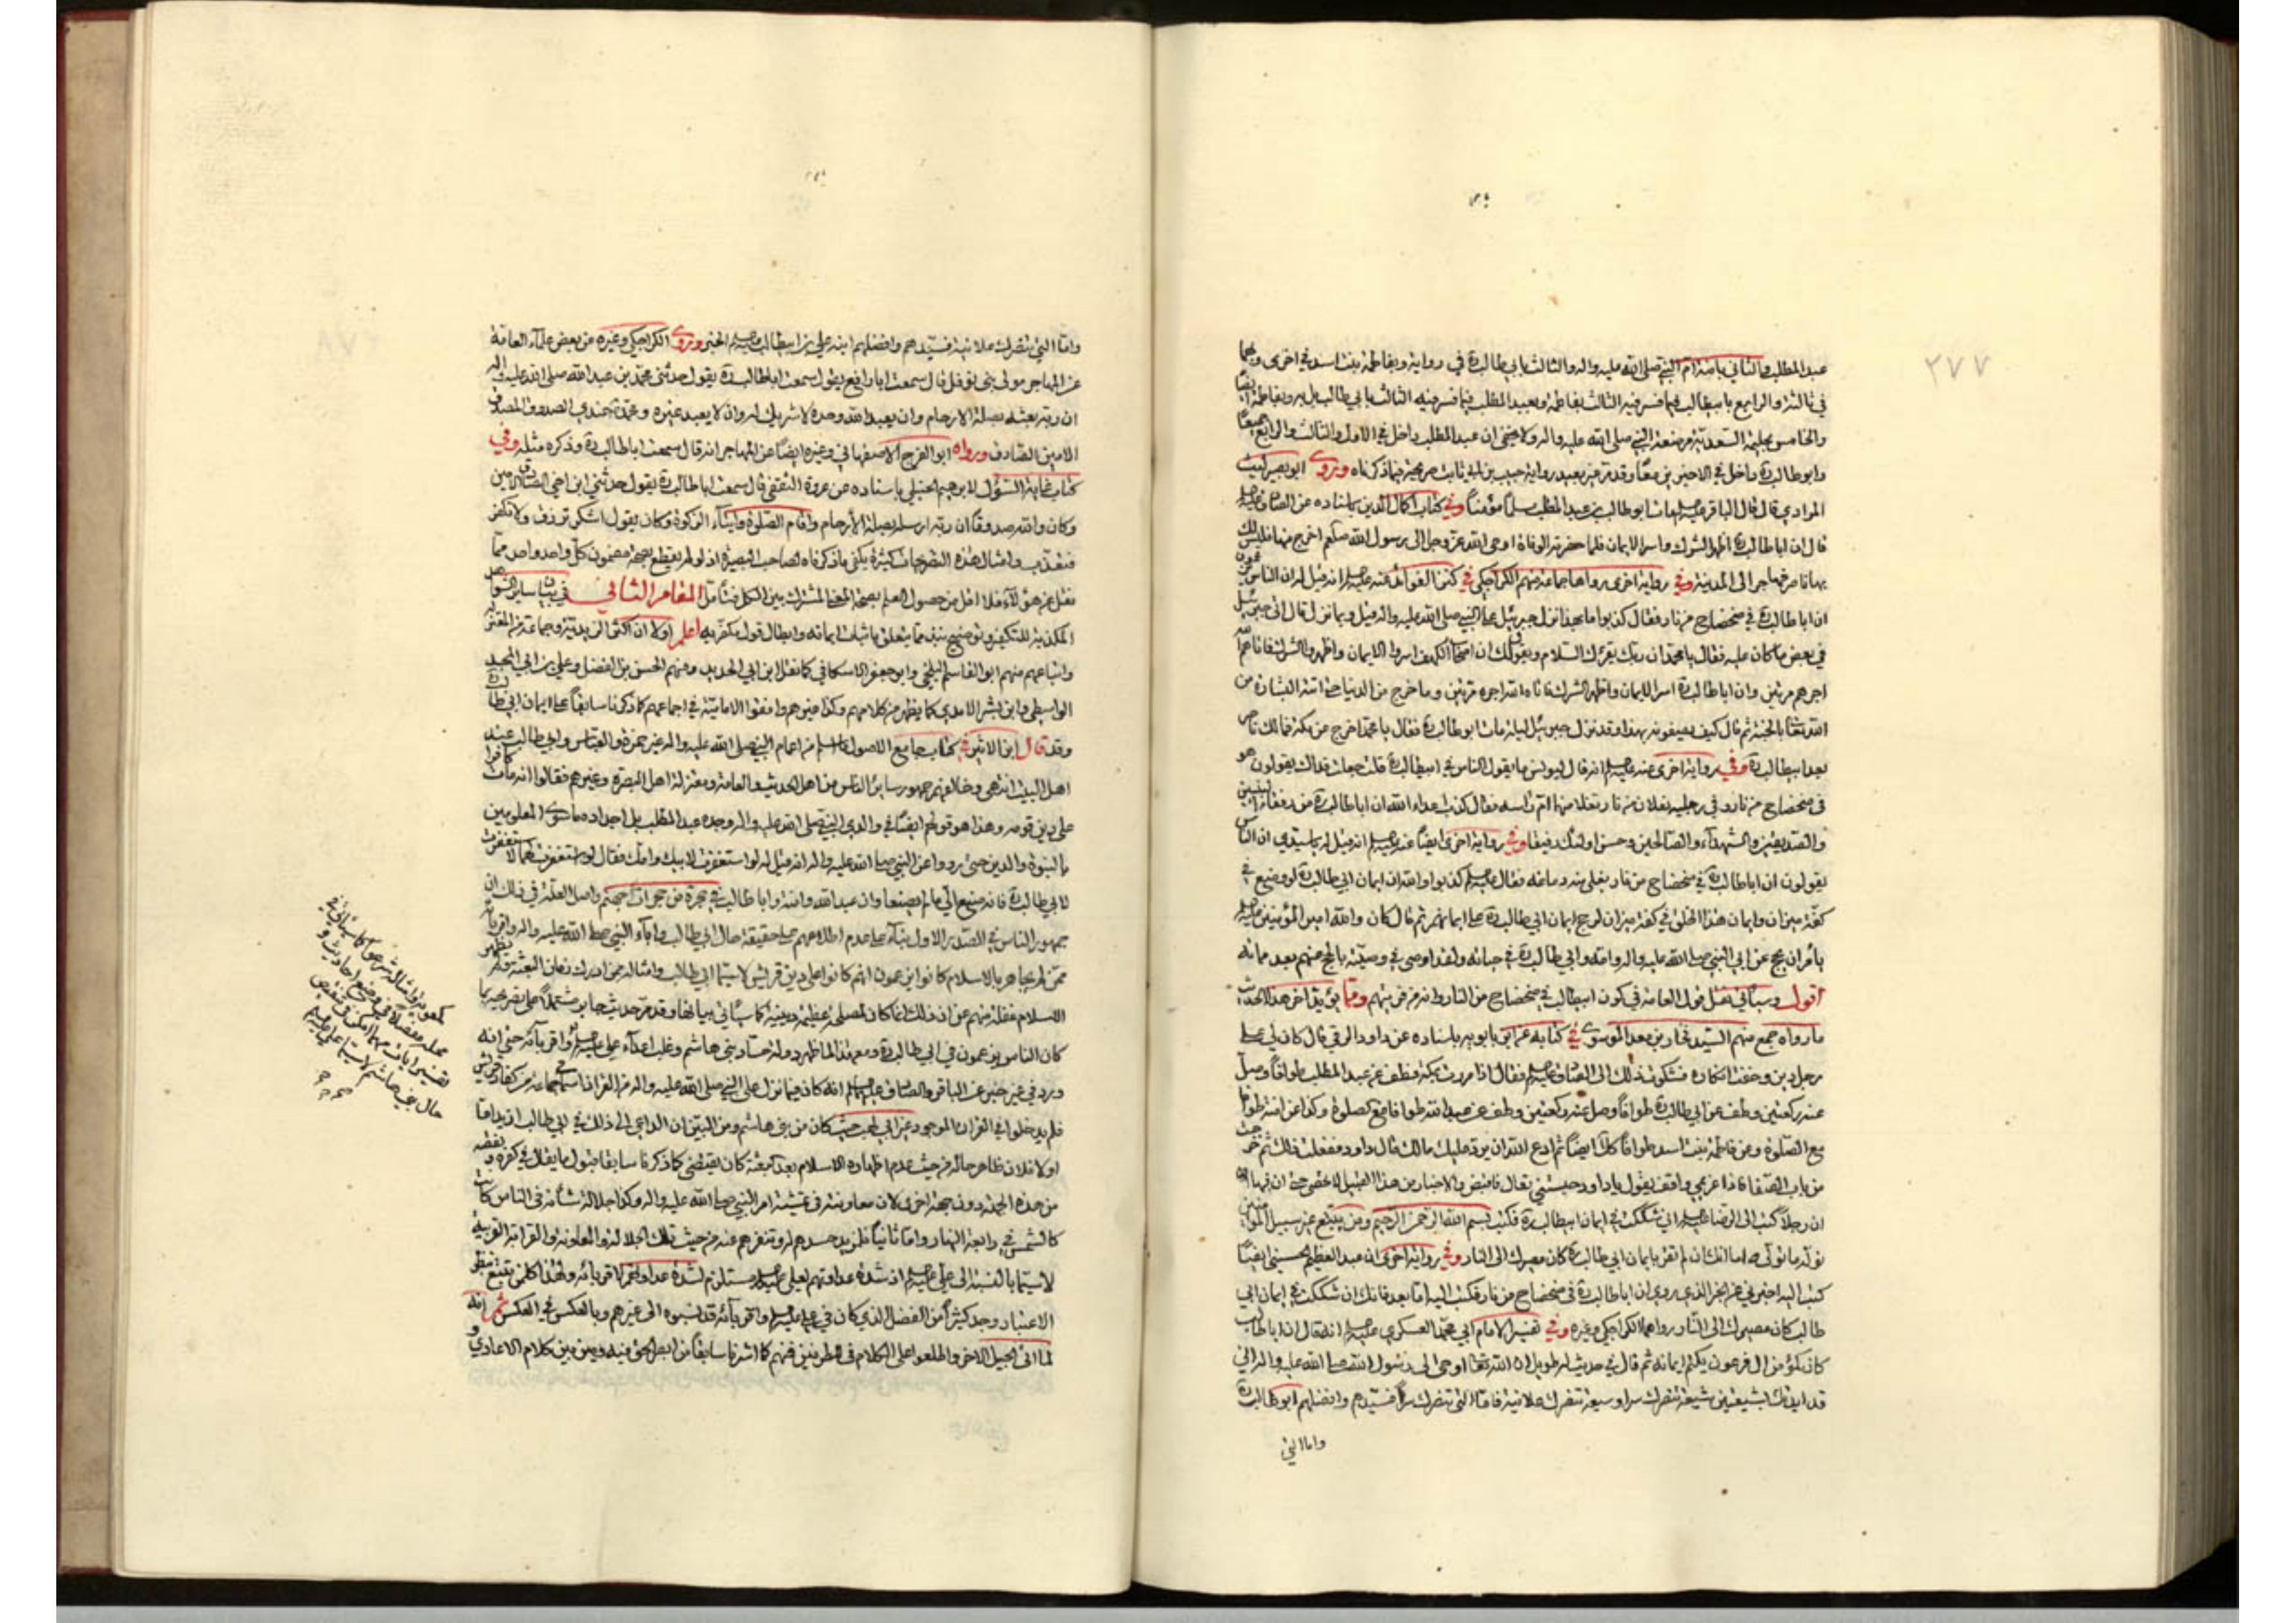 ٢٧٧
عبد المطلب والثاني بآمنة ام النبي صلى الله عليه واله والثالث بابي طالب ره في رواية وبفاطمة بنت اسد في اخرى وبهما
في ثالثة والرابع بابيطالب فيما فسر فيه الثالث بفاطمة وبعبد المطلب فيما فسر فيه الثالث بابي طالب بل به وبفاطمة ايضا
والخامس بحليمة السعدية مرضعة النبي صلى الله عليه واله ولا يخفى ان عبد المطلب داخل في الاول والثالث والرابع جميعا
وابو طالب ره داخل في الاخيرين معا وقد مر خبر رواية حبيب بن ابي ثابت صريحة فيما ذكرناه وروى ابو بصير ليث
المرادي قال قال الباقر عليه السلم مات ابو طالب بن عبد المطلب مسلما مؤمنا وفي كتاب اكمال الدين باسناده عن الصادق عليه السلم
قال ان ابا طالب ره اظهر الشرك واسر الايمان فلما حضرته الوفاة اوحى الله عز وجل الى رسول الله صلعم اخرج منها فليس لك
بها ناصر فهاجر الى المدينة وفي رواية اخرى رواها جماعة منهم الكراجكي في كنز الفوائد عنه عليه السلم انه قيل له ان الناس يزعمون
ان ابا طالب ره في ضحضاح من نار فقال كذبوا ما بهذا نزل جبرئيل على النبي صلى الله عليه واله قيل وبما نزل قال اتى جبرئيل
في بعض ما كان عليه فقال يا محمد ان ربك يقرئك السلام ويقول لك ان اصحاب الكهف اسروا الايمان واظهروا الشرك فاتاهم الله
اجرهم مرتين وان ابا طالب ره اسر الايمان واظهر الشرك فاتاه الله اجره مرتين وما خرج من الدنيا حتى اتته البشارة من
الله تعالى بالجنة ثم قال كيف يصفونه بهذا وقد نزل جبرئيل ليلة مات ابو طالب ره فقال يا محمد اخرج من مكة فمالك ناصر
بعد ابيطالب ره وفي رواية اخرى عنه عليه السلم انه قال ليونس ما يقول الناس في ابيطالب ره قلت جعلت فداك يقولون هو
في ضحضاح من نار وفي رجليه نعلان من نار تغلى منهما ام راسه فقال كذب اعداء الله ان ابا طالب ره من رفقاء النبيين
والصديقين والشهداء والصالحين وحسن اولئك رفيقا وفي رواية اخرى ايضا عنه عليه السلم انه قيل له يا سيدي ان الناس
يقولون ان ابا طالب ره في ضحضاح من نار يغلى منه دماغه فقال عليه السلم كذبوا والله ان ايمان ابي طالب ره لو وضع في
كفة ميزان وايمان هذا الخلق في كفة ميزان لرجح ايمان ابي طالب ره على ايمانهم ثم قال كان والله امير المؤمنين عليه السلم
يأمر ان يحج عن ابي النبي صلى الله عليه واله وامه وابي طالب ره في حياته ولقد اوصى في وصيته بالحج عنهم بعد مماته
اقول وسيأتي نقل قول العامة في كون ابيطالب في ضحضاح من النار وانه من فريتهم ومما يؤيد آخر هذا الحديث
ما رواه جمع منهم السيد فخار بن معد الموسوي في كتابه عن ابن بابويه باسناده عن داود الرقي قال كان لي على
رجل دين وخفت انكاره فشكوت ذلك الى الصادق عليه السلم فقال اذا مررت بمكة فطف عن عبد المطلب طوافا وصل
عنه ركعتين وطف عن ابي طالب ره طوافا وصل عنه ركعتين وطف عن عبد الله طوافا مع الصلوة وكذا عن آمنة طوافا
مع الصلوة وعن فاطمة بنت اسد طوافا كذلك ايضا ثم ادع الله ان يرد عليك مالك قال داود ففعلت ذلك ثم خرجت
من باب الصفا فاذا غريمي واقف يقول يا داود حبستني تعال فاقبض والاخبار من هذا القبيل لا تحصى حتى ان فيها
ان رجلا كتب الى الرضا عليه السلم اني شككت في ايمان ابيطالب ره فكتب بسم الله الرحمن الرحيم ومن يتبع غير سبيل المؤمنين
نوله ما تولى اما انك ان لم تقر بايمان ابي طالب ره كان مصيرك الى النار وفي رواية اخرى ان عبد العظيم الحسيني ايضا
كتب اليه اخبرني عن الخبر الذي يروى ان ابا طالب ره في ضحضاح من نار فكتب اليه اما بعد فانك ان شككت في ايمان ابي
طالب كان مصيرك الى النار رواهما الكراجكي وغيره وفي تفسير الامام ابي محمد العسكري عليه السلم انه قال ان ابا طالب
كان كمؤمن ال فرعون يكتم ايمانه ثم قال في حديث له طويل ان الله تعالى اوحى الى رسول الله صلى الله عليه واله اني
قد ايدتك بشيعتين شيعة تنصرك سرا وشيعة تنصرك علانية فاما التي تنصرك سرا فسيدهم وافضلهم ابو طالب ره
واما التي
واما التي تنصرك علانية فسيدهم وافضلهم ابنه علي بن ابيطالب عليه السلم الخبر وروى الكراجكي وغيره من بعض علماء العامة
عن المهاجر مولى بني نوفل قال سمعت ابا رافع يقول سمعت ابا طالب ره يقول حدثني محمد بن عبد الله صلى الله عليه واله
ان ربه بعثه بصلة الارحام وان يعبد الله وحده لا شريك له وان لا يعبد غيره ومحمد عندي الصدوق المصدق
الامين الصادق ورواه ابو الفرج الاصفهاني وغيره ايضا عن المهاجر انه قال سمعت ابا طالب ره وذكره مثله وفي
كتاب غاية السؤل لابرهيم الحنبلي باسناده عن عروة الثقفي قال سمعت ابا طالب ره يقول حدثني ابن اخي الصادق الامين
وكان والله صدوقا ان ربه ارسله بصلة الأرحام واقام الصلوة وايتاء الزكوة وكان يقول اشكر ترزق ولا تكفر
فتعذب وامثال هذه التصريحات كثيرة يكفي ما ذكرناه لصاحب البصيرة اذ لو لم يقطع بصحة مضمون كل واحد واحد مما
نقل عن هؤلاء فلا اقل من حصول العلم بصحة المعنى المشترك بين الكل فتأمل المقام الثاني في بيان ساير النصوص
المكذبة للتكفير وتوضيح نبذ مما يتعلق باثبات ايمانه وابطال قول مكفريه اعلم اولا ان اكثر الزيدية وجماعة من المعتزله
واتباعهم منهم ابو القاسم البلخي وابو جعفر الاسكافي كما نقل ابن ابي الحديد ومنهم الحسن بن الفضل وعلي بن ابي المجد
الواسطي وابن بشر الامدي كما يظهر من كلامهم وكذا غيرهم وافقوا الامامية في اجماعهم كما ذكرنا سابقا على ايمان ابي طالب ره
وقد قال ابن الاثير في كتاب جامع الاصول ما اسلم من اعمام النبي صلى الله عليه واله غير حمزة والعباس وابي طالب عند
اهل البيت انتهى وخالفهم جمهور ساير الناس من اهل الحديث والعامة ومعتزلة اهل البصرة وغيرهم فقالوا انه مات كافرا
على دين قومه وهذا هو قولهم ايضا في والدي النبي صلى الله عليه واله وجده عبد المطلب بل اجداده ما سوى المعلومين
بالنبوة والدين حتى رووا عن النبي صلى الله عليه واله انه قيل له لو استغفرت لابيك وامك فقال لو استغفرت لهما لاستغفرت
لابي طالب ره فانه صنع الي ما لم يصنعا وان عبد الله وآمنة وابا طالب في حجرة من حجرات جهنم واصل العلة في ذلك ان
جمهور الناس في الصدر الاول بناء على عدم اطلاعهم على حقيقة حال ابي طالب وآباء النبي صلى الله عليه واله واقربائه
ممن لم يجاهر بالاسلام كانوا يزعمون انهم كانوا على دين قريش لا سيما ابي طالب وامثاله ممن ادرك زمان البعثة ولم يظهر
الاسلام غفلة منهم عن ان ذلك انما كان لمصلحة عظيمة دينية كما سيأتي بيانها وقد مر حديث جابر مشتملا على تصريحه بما
كان الناس يزعمون في ابي طالب ره ومع هذا لما ظهر دولة حساد بني هاشم وغلب اعداء علي عليه السلم واقربائه حتى انه
ورد في غير خبر عن الباقر والصادق عليهما السلم انه كان فيما نزل على النبي صلى الله عليه واله من القران اسماء جماعة من كفار قريش
فلم يدخلوا في القران الموجود غير ابي لهب حيث كان من بني هاشم ومن البين ان الداعي الى ذلك في ابي طالب ازيد اما
اولا فلان ظاهر حاله من حيث عدم اظهاره الاسلام بعد البعثة كان يقتضي كما ذكرنا سابقا قبول ما يقال في كفره
من هذه الجهة دون جهة اخرى لان معاونته في تمشية امر النبي صلى الله عليه واله وكذا جلالة شأنه في الناس كانت
كالشمس في رابعة النهار واما ثانيا فلمزيد حسدهم له وتنفرهم عنه من حيث تلك الجلالة والمعاونة والقرابة القريبة
لا سيما بالنسبة الى علي عليه السلم اذ شدة عداوتهم لعلي عليه السلم مستلزم لشدة عداوتهم لاقربائه ولهذا كل من تتبع بنظر
الاعتبار وجد كثيرا من الفضل الذي كان في علي عليه السلم واقربائه قد نسبوه الى غيرهم وبالعكس في العكس ثم انه
لما اتى الجيل الاخر واطلعوا على الكلام في الطرفين فمنهم كما اشرنا سابقا من ابصر الحق فيه وميز بين كلام الاعادي و
كمعوية وامثاله شرعوا كما سيأتي في
محله مفصلا في وضع احاديث و
تفسير ايات مهما امكن في تنقيص
حال بني هاشم لا سيما علي عليه السلم